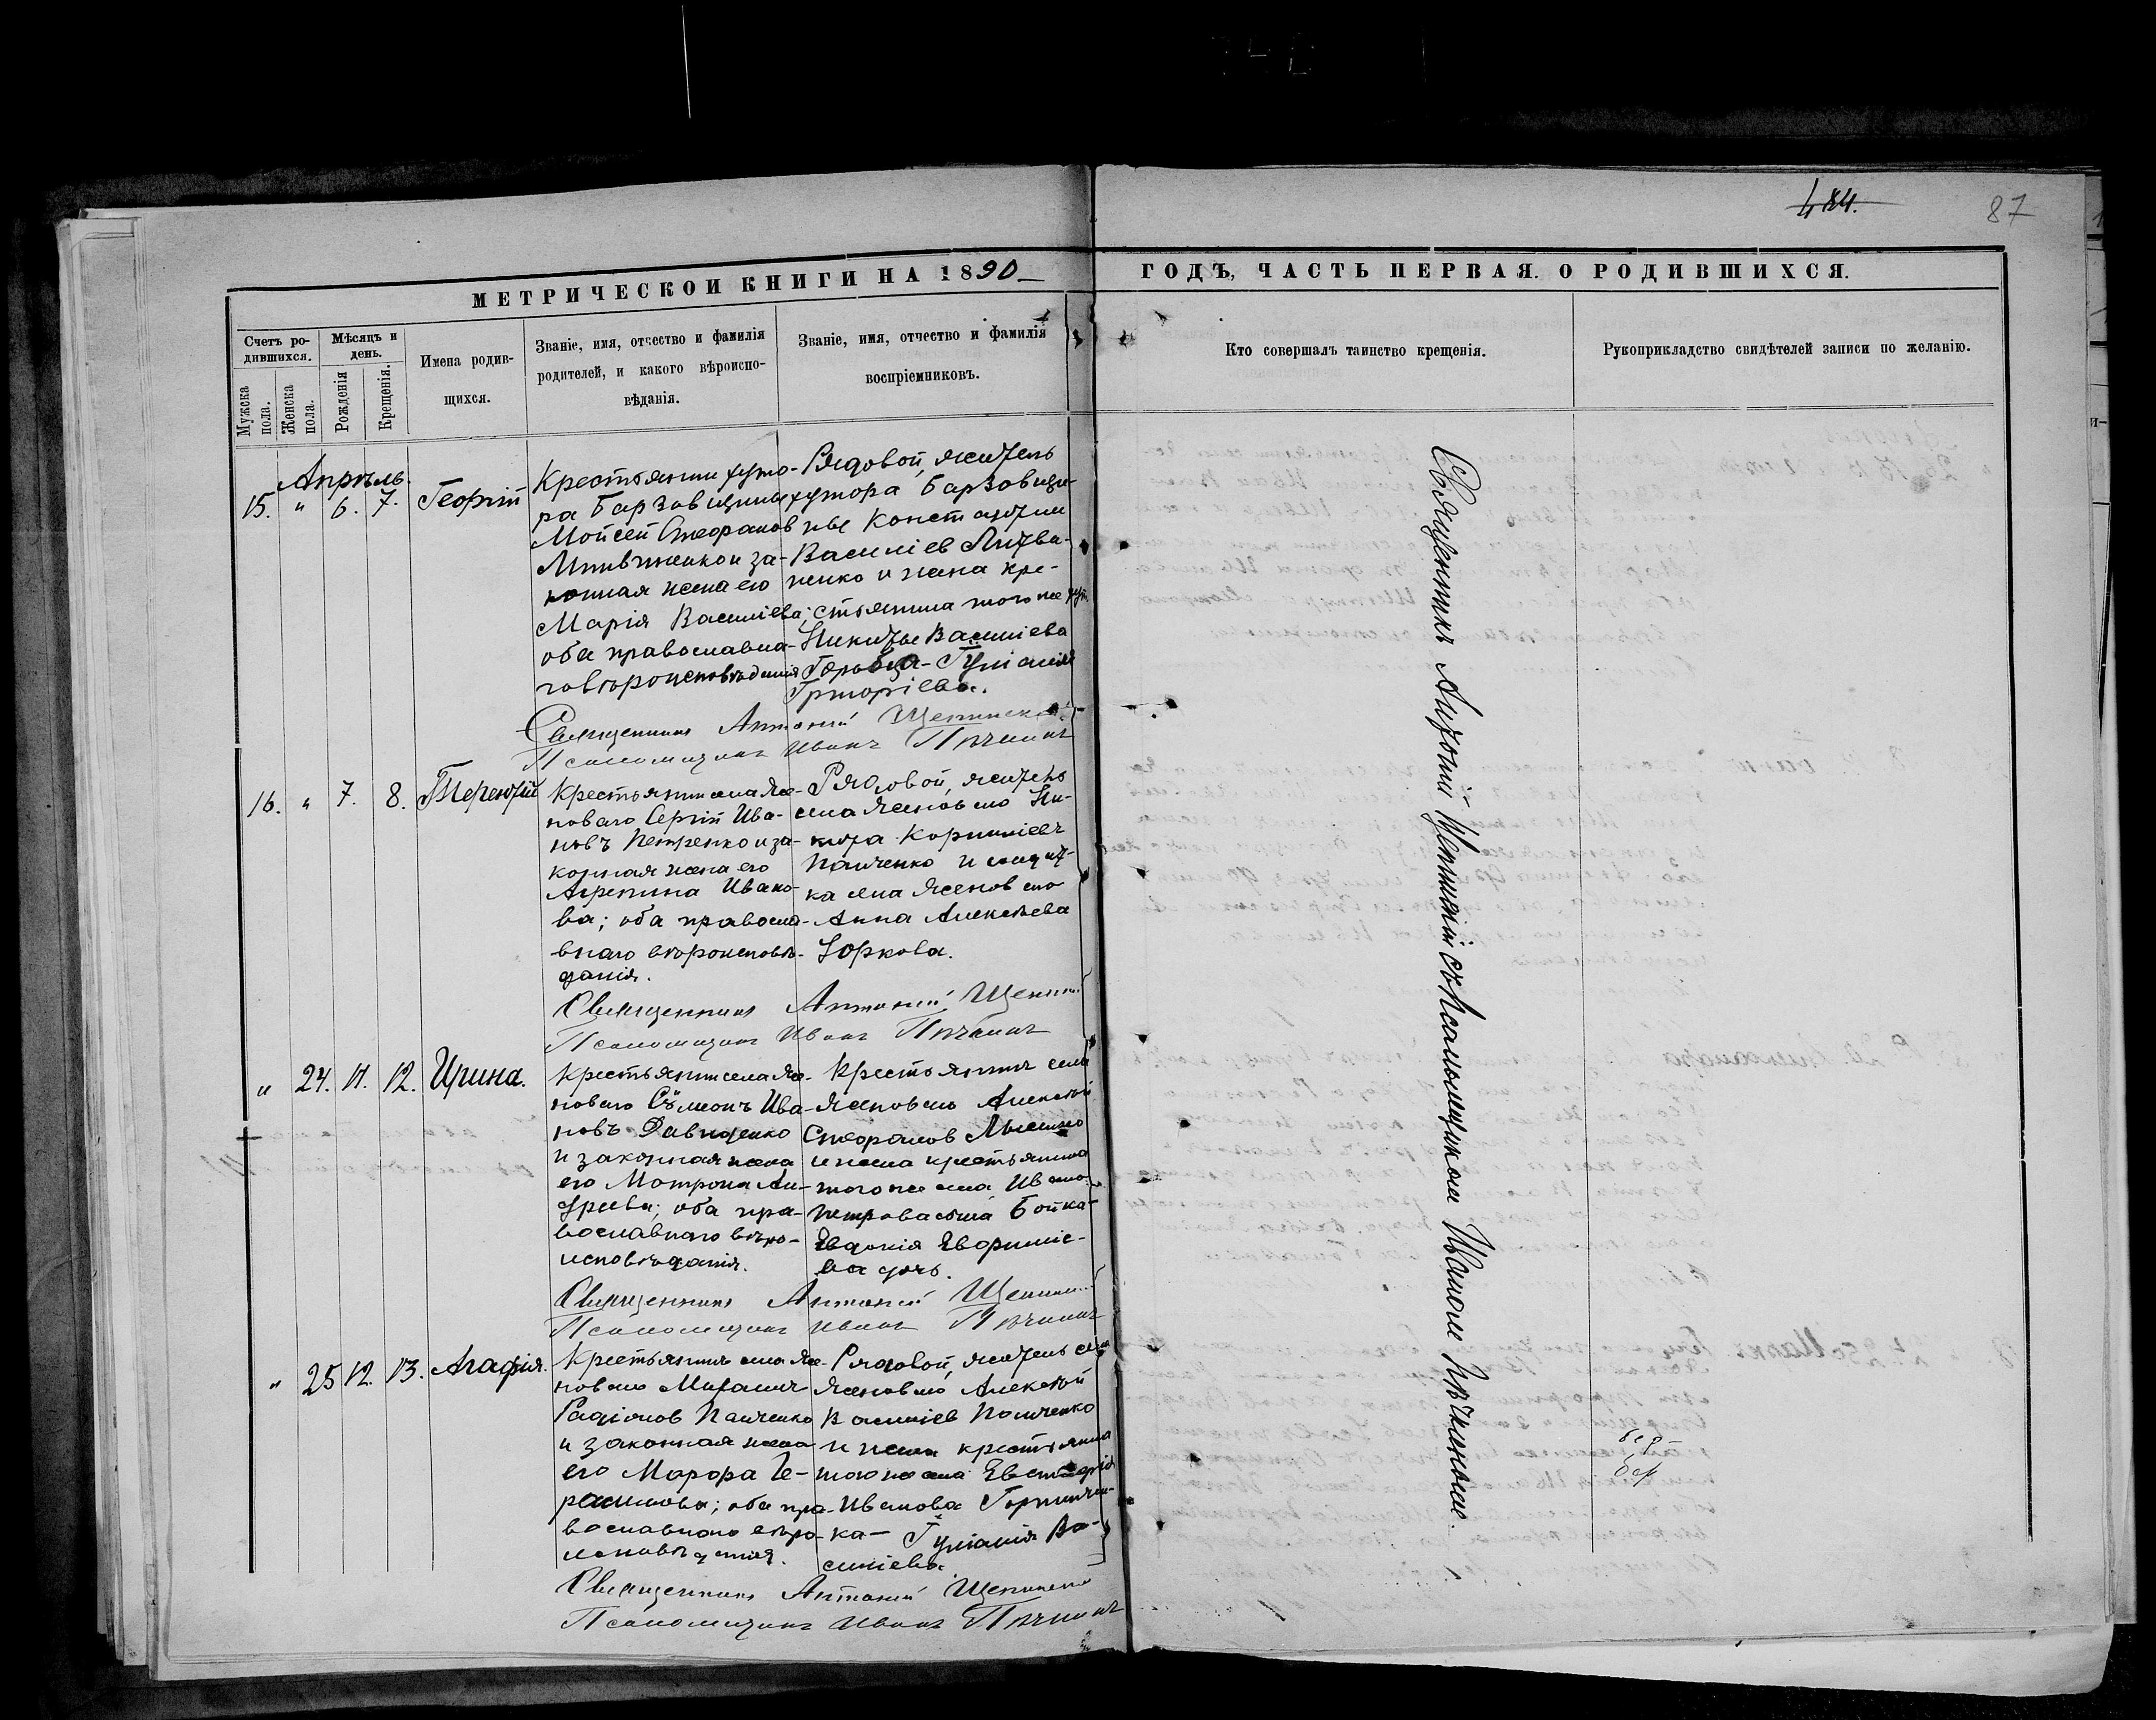 484.
87
МЕТРИЧЕСКОЙ КНИГИ НА 1890
ГОДЪ, ЧАСТЬ ПЕРВАЯ. О РОДИВШИХСЯ.
Счетъ ро-
дившихся.
Мужска
пола.
Женска
пола.
Мѣсяцъ и
день.
Рожденія
Крещенія.
Имена родив-
щихся.
Званіе, имя, отчество и фамилія
родителей, и какого вѣроиспо-
вѣданія.
Званіе, имя, отчество и фамилія
воспріемниковъ.
Кто совершалъ таинство крещенія.
Рукоприкладство свидѣтелей записи по желанію.
Апрѣль.
15. " 6. 7. Георгій
Крестьянин хуто-
ра Барзовщины
Мойсей Стефанов
и за-
конная жена его
Марія Василіева;
оба православна-
го вѣроисповѣданія
Рядовой, житель
хутора Барзовщи-
ны Константин
Василіев Литви-
ненко и жена кре-
стьянина того же хут.
Никиты Василіева
Григоріева.
Священникъ Антоній Щепинскій
Псаломщикъ Иванъ Пѣчкинъ
16. " 7. 8. Терентій
Крестьянин села Ясе-
новаго Сергій Ива-
новъ Петренко и за-
конная жена его
Агрепина Ивано-
ва; оба правосла-
внаго вѣроисповѣ-
данія.
Рядовой, житель
села Ясеноваго Ни-
кита Корниліевъ
Панченко и солдат-
ка села Ясеноваго
Анна Алексѣева
Зоркова.
Священникъ Антоній Щепинскій
Псаломщикъ Иванъ Пѣчкинъ
" 24. 11. 12. Ирина.
Крестьянин села Ясе-
новаго Сѵмеонъ Ива-
новъ Давиденко
и законная жена
его Матрона Ан-
дреева; оба пра-
вославнаго вѣро-
исповѣданія.
Крестьянинъ села
Ясеноваго Алексѣй
Стефанов
и жена крестьянина
того же села Ивана
Петрова сына Бойка-
Евдокія Евфиміе-
ва дочь.
Священникъ Антоній Щепинскій
Псаломщикъ Иванъ Пѣчкинъ
" 25 12. 13. Агафія.
Крестьянинъ села Ясе-
новаго Михаилъ
Радіонов Панченко
и законная жена
его Марфа Ге-
расимова; оба пра-
вославнаго вѣро-
исповѣданія.
Рядовой, житель села
Ясеноваго, Алексѣй
Василіев Панченко
и жена крестьянина
того же села Евстафія
Иванова
ка- Гуліанія Ва-
силіева.
Священникъ Антоній Щепинскій
Псаломщикъ Иванъ Пѣчкинъ
Священникъ Антоній Щепинскій съ Псаломщикомъ Иваномъ Пѣчкинымъ.